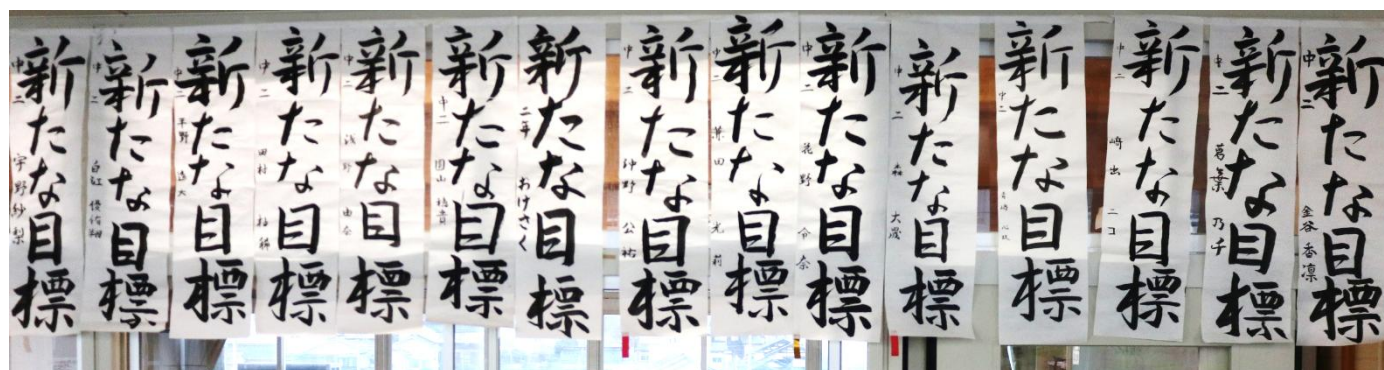 新たな目標
中二 宇野紗梨
新たな目標
中二
新たな目標
中二 平野
新たな目標
中二 田村
新たな目標
中二 浅野 由奈
新たな目標
中二 園山
新たな目標
二年 おけさく
新たな目標
中二 仲野 公祐
新たな目標
中二 葉田 光莉
新たな目標
中二 花野 令奈
新たな目標
中二 森 大晟
新たな目標
中二
新たな目標
中二 嶋出 ニコ
新たな目標
中二 葛葉 乃千
新たな目標
中二 金谷香凛